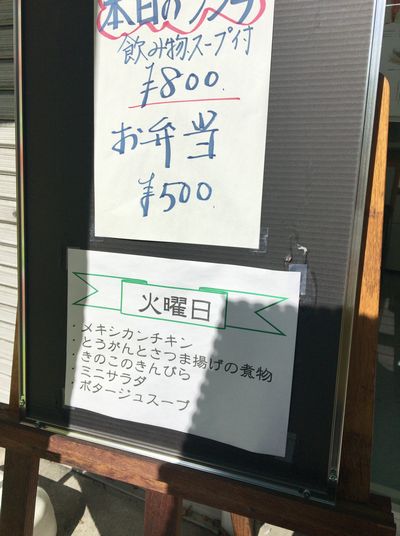 本日のランチ
飲み物.スープ付
¥800
お弁当
¥500
火曜日
・メキシカンチキン
・とうがんとさつま揚げの煮物
・きのこのきんぴら
・ミニサラダ
・ポタージュスープ